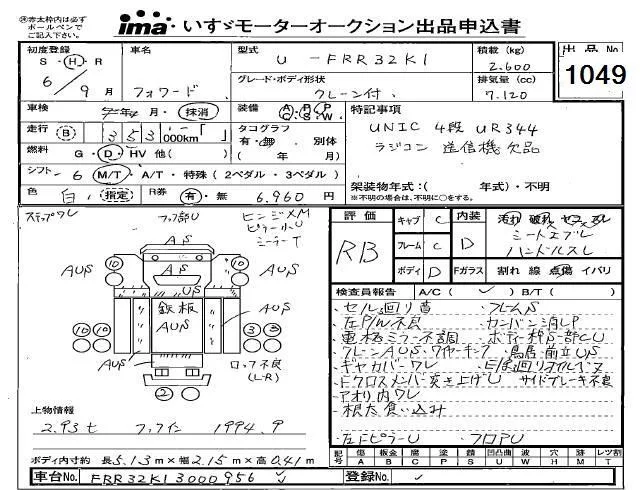 ※赤太枠内は必ず
ボールペンで
ご記入下さい。
ima いすゞモーターオークション出品申込書
初度登録 車名 型式 U-FRR32K1 積載(kg) 2.600 出品No
S・H・R 6/9月 フォワード グレード・ボディ形状 クレーン付 排気量(cc) 7.120 1049
車検 年 月・抹消 装備 A・P・P C・S・W 特記事項
走行 B 353,000km タコグラフ 有・無 別体 UNIC 4段 UR344
燃料 G・D・HV 他( ) ( 年 月) ラジコン 送信機欠品
シフト 6 M/T・A/T・特殊(2ペダル・3ペダル) 架装物年式:( 年式)・不明
色 白 指定 R券 有・無 6.960円 ※不明の場合は、不明に○をする。
ステップワレ フック部U ヒンジ×M
ピラー小U
ミラーT
評価 RB キャブ C 内装 D 汚れ 破れ
フレーム C シートスブレ
ハンドルスレ
ボディ D Fガラス 割れ 線 点傷 イバリ
AS
10 10
AUS AS AUS
US
鉄板
AUS
10 10 3 3
AUS AUS ロック不良
(L-R)
2
検査員報告 A/C( ) B/T( )
・セル回り音 ・フレームS
・左P/W不良 ・カンバン消しP
・電格ミラー不調 ・ボデー枠S一部CU
・クレーンAUS・ワイヤーキンク ・鳥居・前立US
・ギヤカバーワレ
・Fクロスメンバー突き上げU サイドブレーキ不良
・アオリ内ワレ
・根太食い込み
・左ドピラーU ・フロアU
上物情報
2.93t フルハイン 1994.9
ボディ内寸約 長5.13m×幅2.15m×高0.41m
記号 傷 板金 腐 塗 錆 凹凸曲 凹 穴 跡 レツ割
A B C P S U W H M T
車台No. FRR32K13000956 登録No.